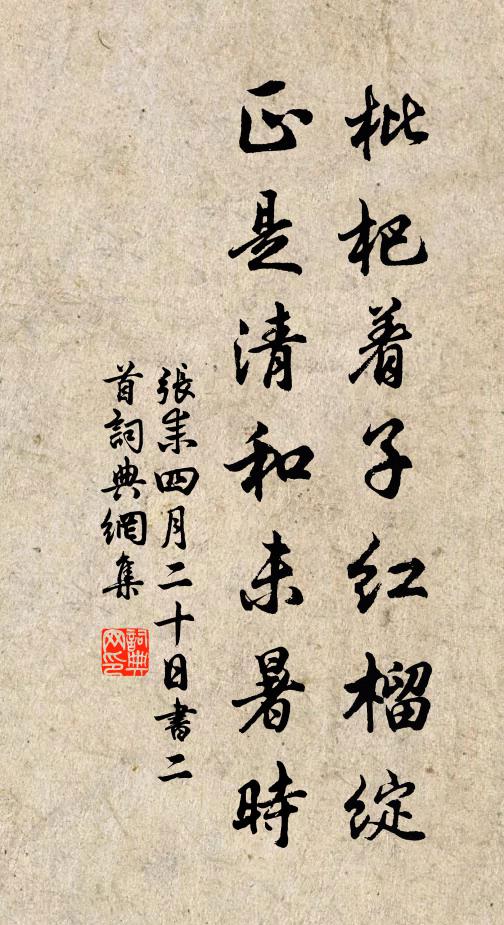 枇杷着子红榴綻
正是清和未暑時
張耒四月二十日書二
首詞典網集
詞典
网印